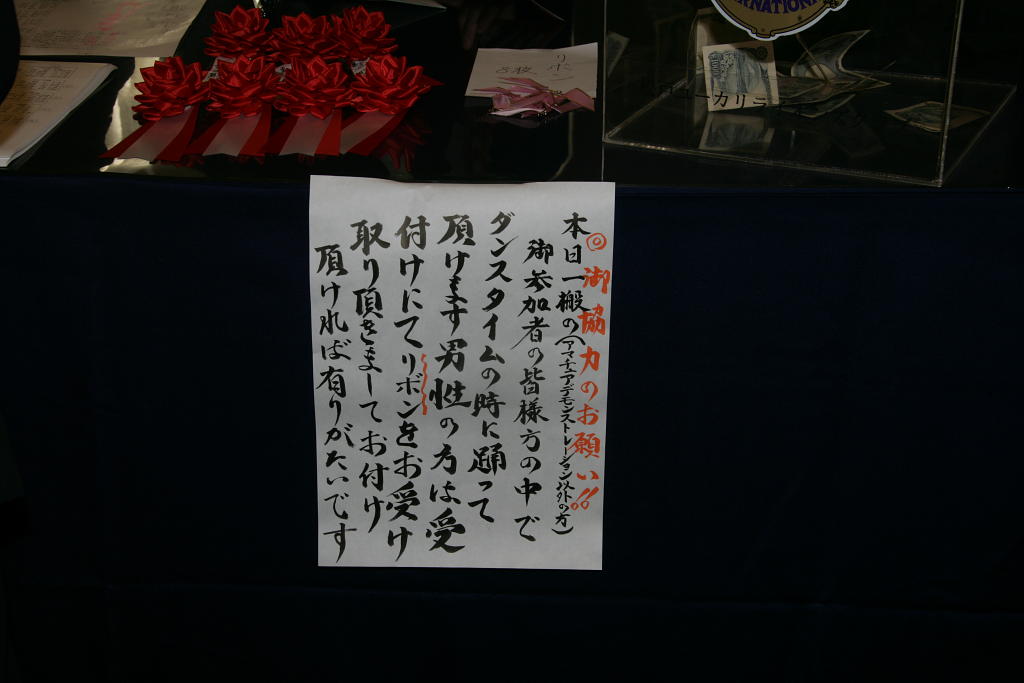 ◎御協力のお願い!!
本日一般の(アマチュアデモンストレーション以外の方)
御参加者の皆様方の中で
ダンスタイムの時に踊って
頂けます男性の方は受
付けにてリボンをお受け
取り頂きましてお付け
頂ければ有りがたいです
リボン
ERNATION